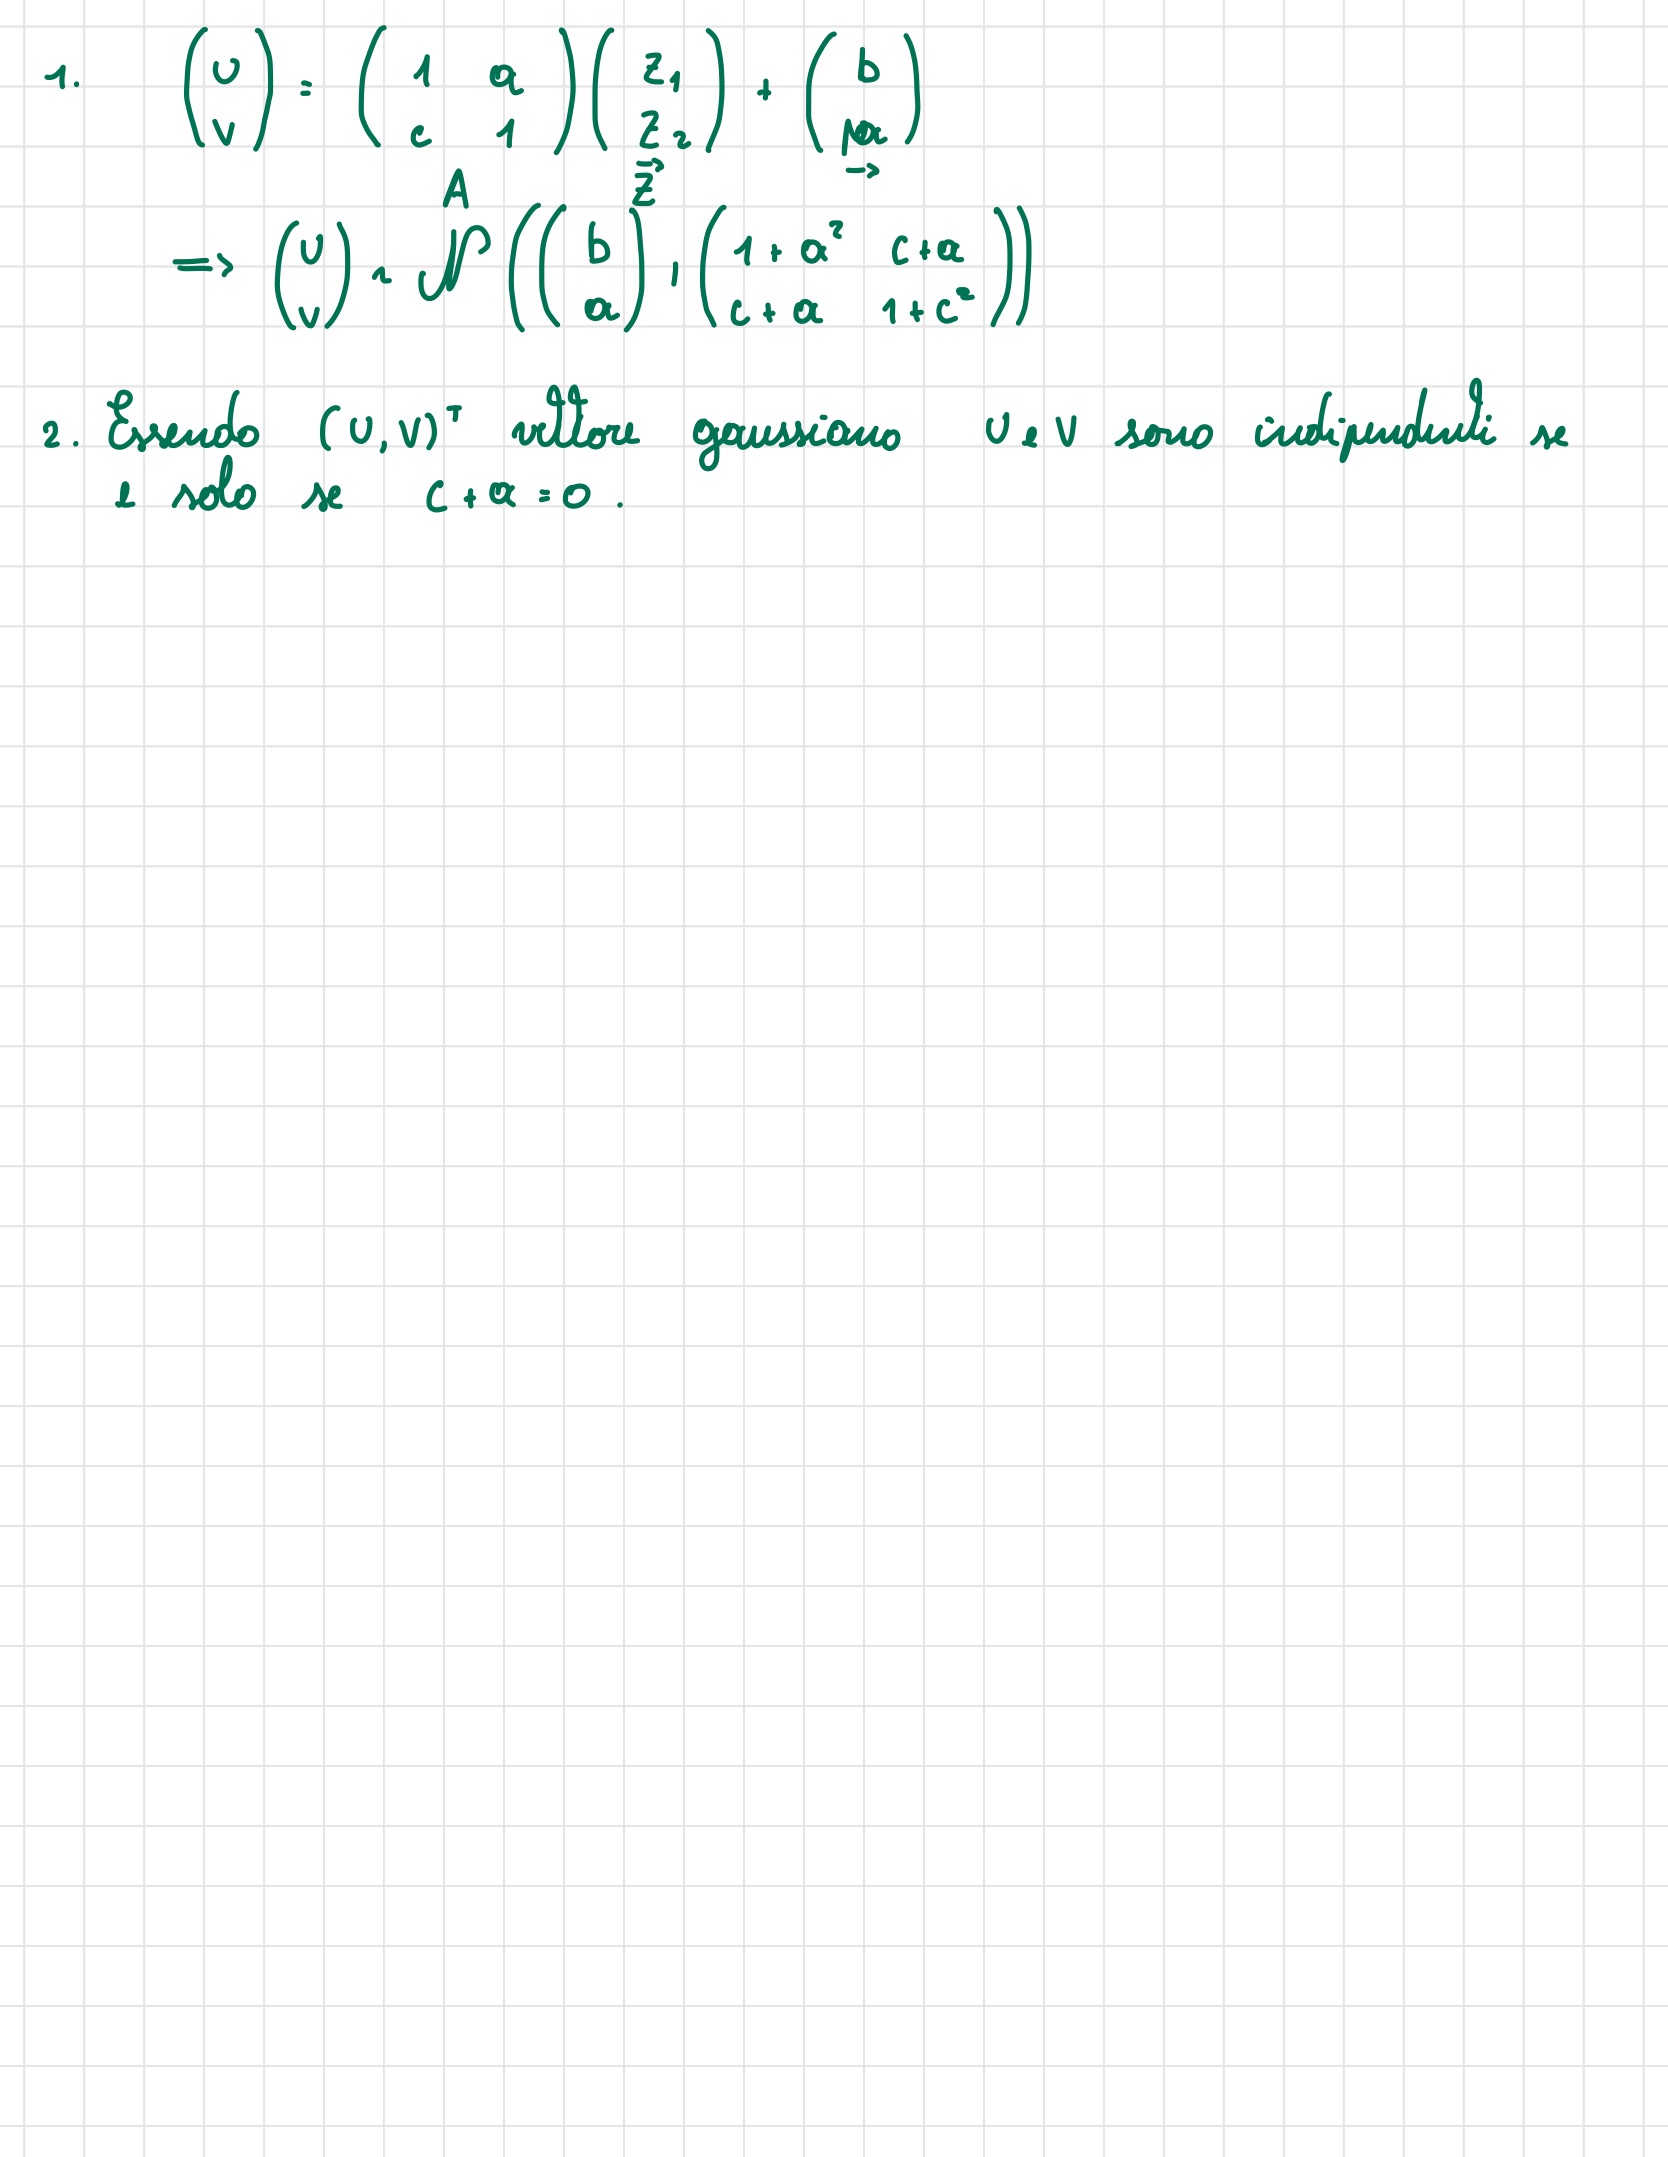 1. (U V) = (1 a c 1) (Z₁ Z₂) + (b a)
A Z⃗
⟹ (U V) ~ N ((b a), (1+a² c+a c+a 1+c²))
2. Essendo (U,V)ᵀ vettore gaussiano U e V sono indipendenti se
e solo se c+a=0.